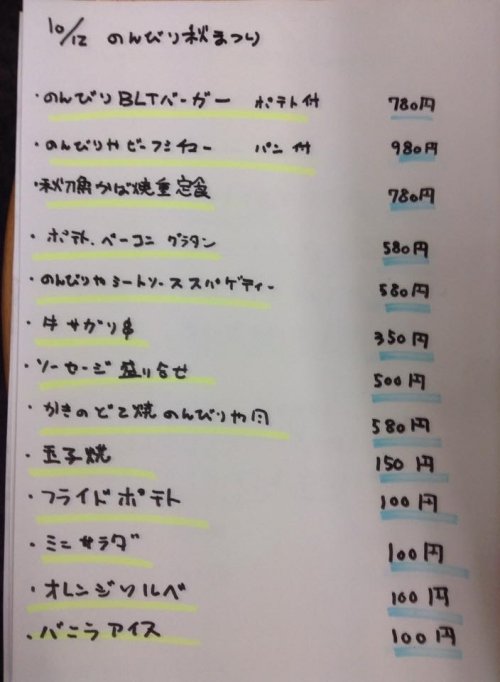 10/12 のんびり秋まつり
・のんびりBLTバーガー ポテト付 780円
・のんびりやビーフシチュー パン付 980円
・秋刀魚かば焼重定食 780円
・ポテト、ベーコン グラタン 580円
・のんびりやミートソーススパゲティー 580円
・牛サガリ串 350円
・ソーセージ盛り合せ 500円
・かきのどて焼 のんびりや風 580円
・玉子焼 150円
・フライドポテト 100円
・ミニサラダ 100円
・オレンジソルベ 100円
・バニラアイス 100円